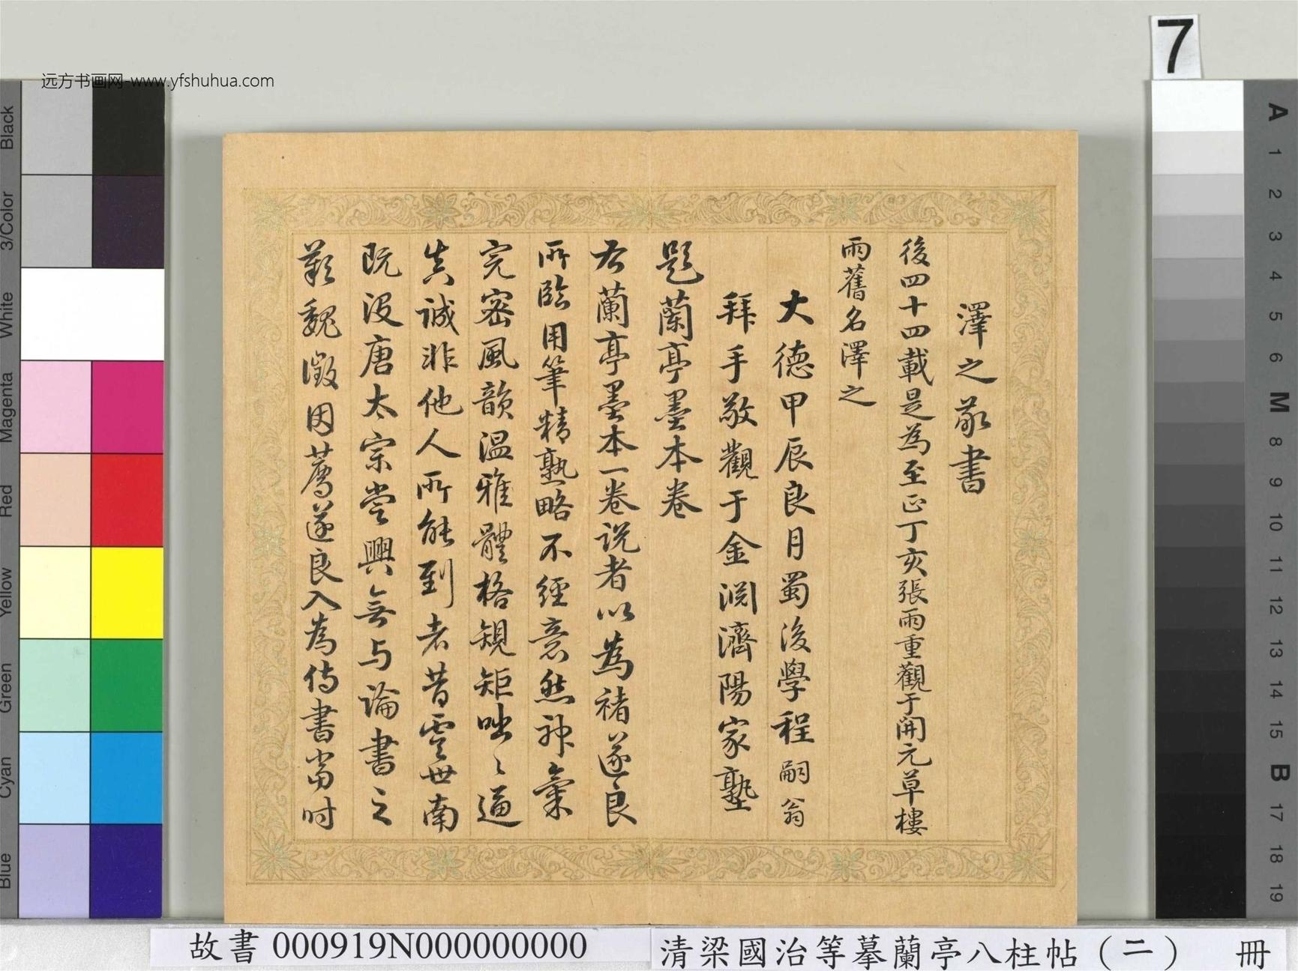 远方书画网-www.yfshuhua.com
7
澤之敬書
後四十四載是為至正丁亥張雨重觀于開元草樓
雨舊名澤之
大德甲辰良月蜀後學程嗣翁
拜手敬觀于金淵濟陽家塾
題蘭亭墨本卷
右蘭亭墨本一卷说者以為褚遂良
所臨用筆精熟略不經意然神氣
完密風韻溫雅體格規矩咄〻逼
真誠非他人所能到者昔虞世南
既沒唐太宗嘗興無与論書之
歎魏徵因薦遂良入為侍書當时
Black
3/Color
White
Magenta
Red
Yellow
Green
Cyan
Blue
A
1
2
3
4
5
6
M
8
9
10
11
12
13
14
15
B
17
18
19
故書 000919N000000000
清梁國治等摹蘭亭八柱帖（二） 冊